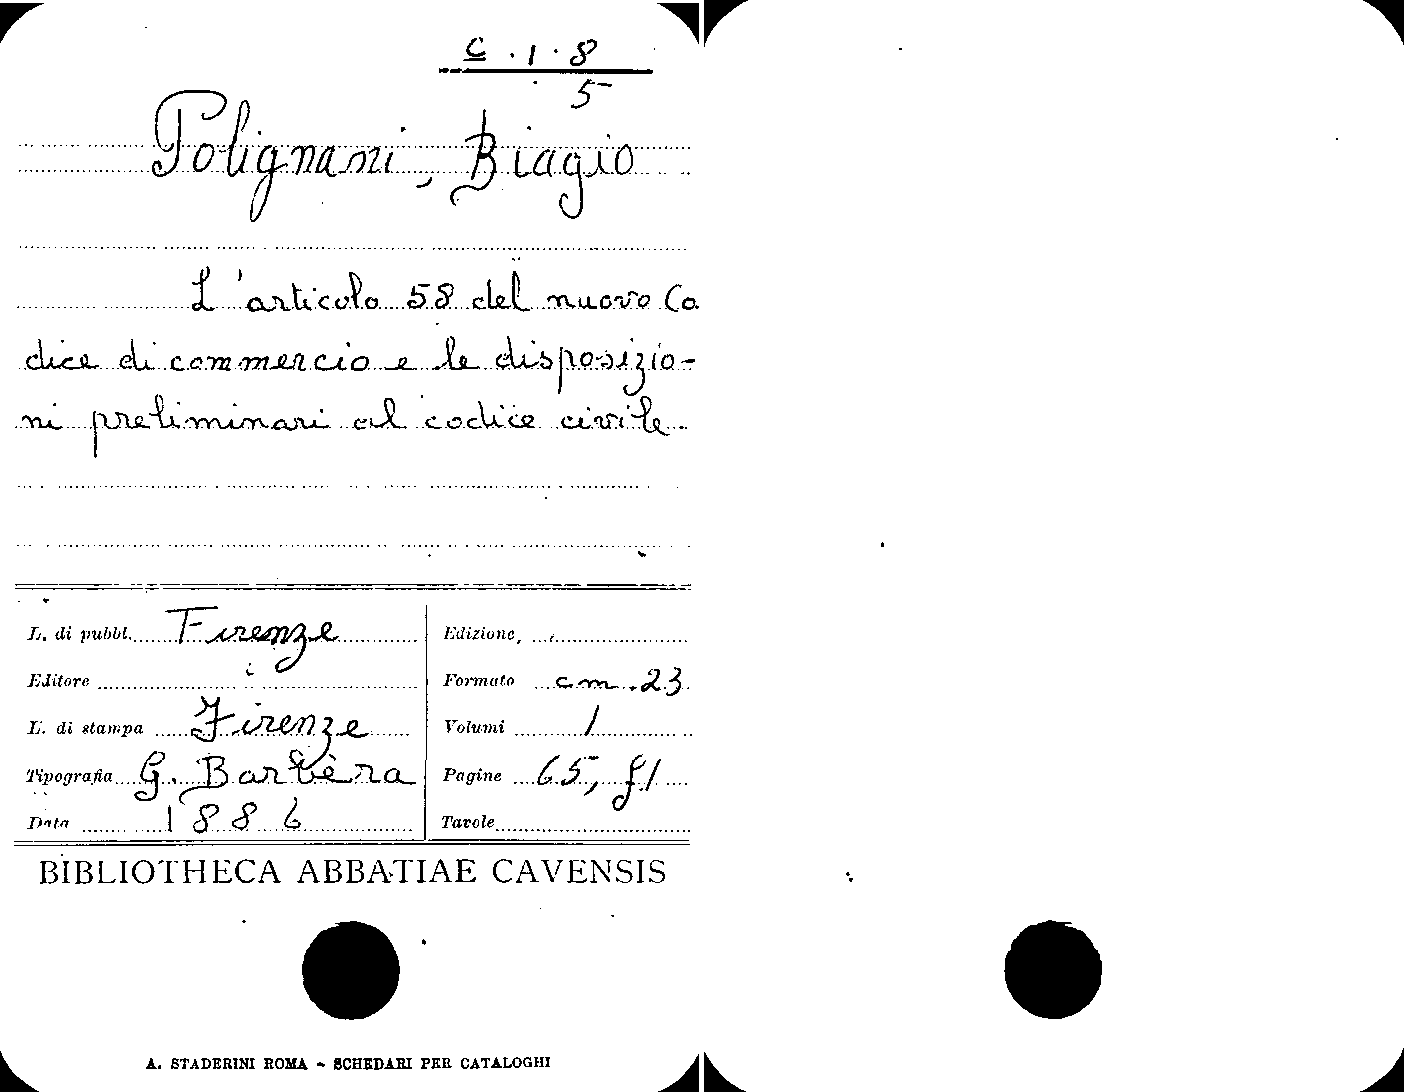 C . 1 . 8
5
Polignani, Biagio
L'articolo 58 del nuovo Co
dice di commercio e le disposizio-
ni preliminari al codice civile.
L. di pubbl. Firenze
Editore
L. di stampa Firenze
Tipografia G. Barbèra
Data 1886
Edizione,
Formato cm. 23
Volumi 1
Pagine 65, f1
Tavole
BIBLIOTHECA ABBATIAE CAVENSIS
A. STADERINI ROMA - SCHEDARI PER CATALOGHI